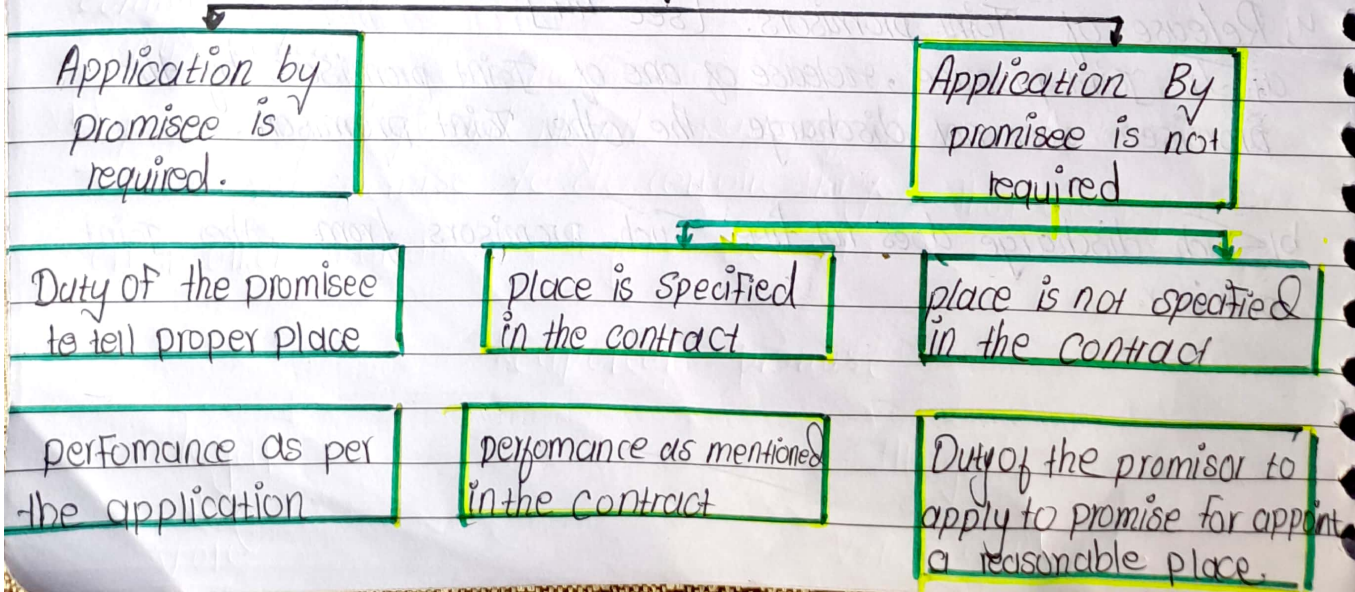 Application by
promisee is
required.
Application By
promisee is not
required
Duty of the promisee
to tell proper place
place is specified
in the contract
place is not specified
in the contract
perfomance as per
the application
perfomance as mentioned
in the contract
Duty of the promisor to
apply to promise for appoint
a reasonable place.